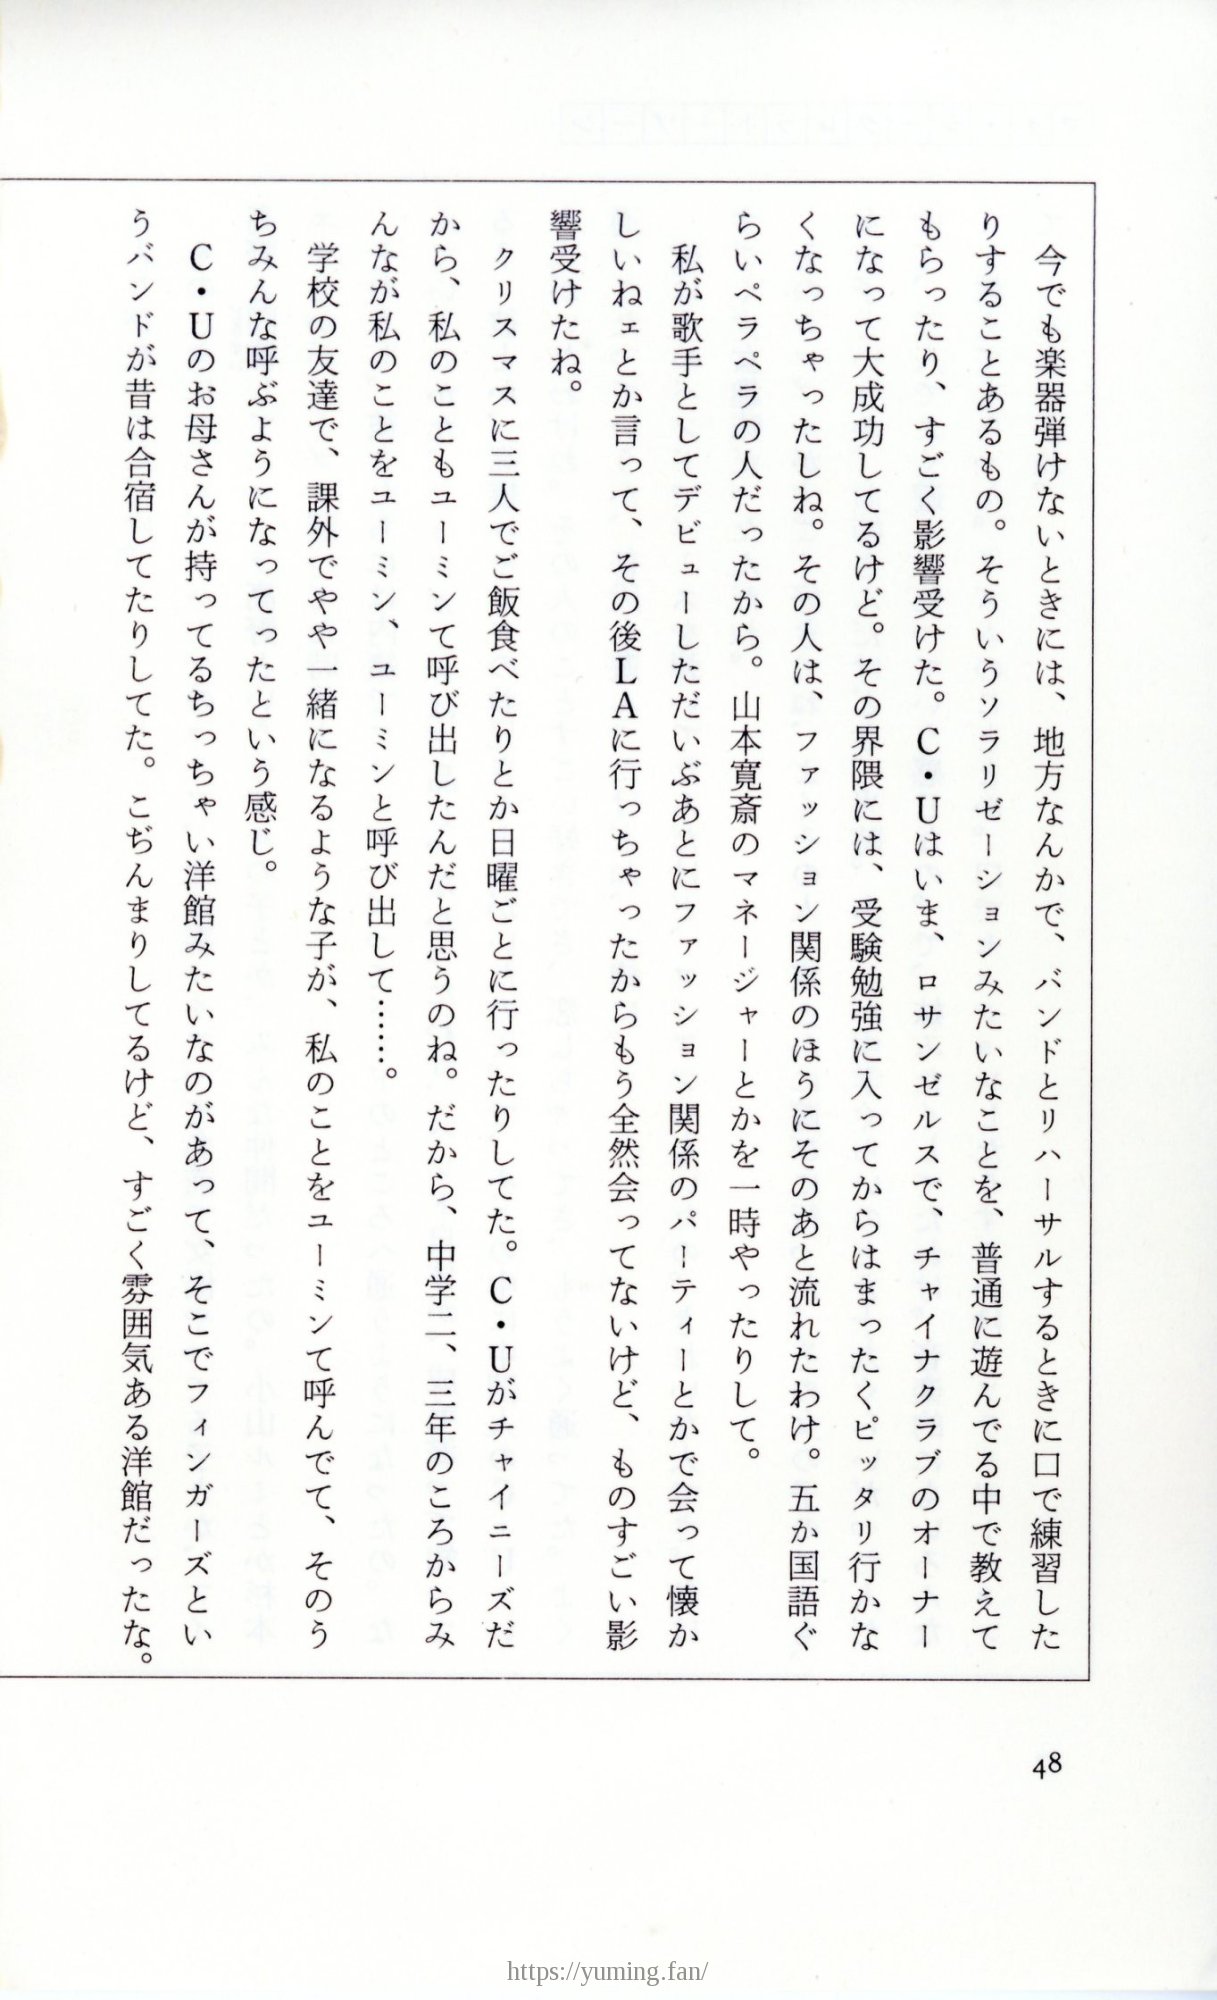 今でも楽器弾けないときには、地方なんかで、バンドとリハーサルするときに口で練習した
りすることあるもの。そういうソラリゼーションみたいなことを、普通に遊んでる中で教えて
もらったり、すごく影響受けた。C・Uはいま、ロサンゼルスで、チャイナクラブのオーナー
になって大成功してるけど。その界隈には、受験勉強に入ってからはまったくピッタリ行かな
くなっちゃったしね。その人は、ファッション関係のほうにそのあと流れたわけ。五か国語ぐ
らいペラペラの人だったから。山本寛斎のマネージャーとかを一時やったりして。
私が歌手としてデビューしただいぶあとにファッション関係のパーティーとかで会って懐か
しいねェとか言って、その後LAに行っちゃったからもう全然会ってないけど、ものすごい影
響受けたね。
クリスマスに三人でご飯食べたりとか日曜ごとに行ったりしてた。C・Uがチャイニーズだ
から、私のこともユーミンて呼び出したんだと思うのね。だから、中学二、三年のころからみ
んなが私のことをユーミン、ユーミンと呼び出して……。
学校の友達で、課外でやや一緒になるような子が、私のことをユーミンて呼んでて、そのう
ちみんな呼ぶようになってったという感じ。
C・Uのお母さんが持ってるちっちゃい洋館みたいなのがあって、そこでフィンガーズとい
うバンドが昔は合宿してたりしてた。こぢんまりしてるけど、すごく雰囲気ある洋館だったな。
48
https://yuming.fan/